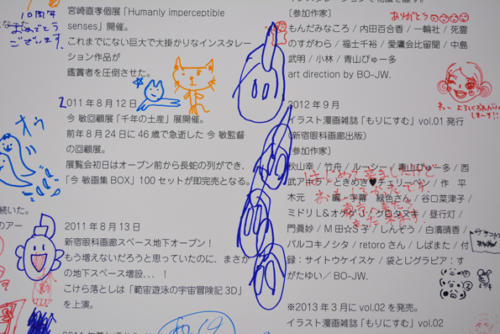 10周年
おめでとう
ございます。
宮崎直孝個展「Humanly imperceptible
senses」開催。
これまでにない巨大で大掛かりなインスタレー
ション作品が
鑑賞者を圧倒させた。
2011年8月12日
今 敏回顧展「千年の土産」展開催。
前年8月24日に46歳で急逝した今 敏監督
の回顧展。
展覧会初日はオープン前から長蛇の列ができ、
「今 敏画集BOX」100セットが即完売となる。
続いた。
2011年8月13日
新宿眼科画廊スペース地下オープン!
もう増えないだろうと思っていたのに、まさか
の地下スペース増設...!
こけら落としは「範宙遊泳の宇宙冒険記3D」
を上演。
ありがとう
〔参加作家〕
もんだみなころ／内田百合香／一輪社／死霊
のすがわら／福士千裕／愛鷹会比留間／中島
武明／小林／青山びゅー多
art direction by BO-JW.
2012年9月
イラスト漫画雑誌「もりにすむ」vol.01発行
(新宿眼科画廊出版)
〔参加作家〕
秋山幸／竹舟／ルーシー／青山びゅー多／西
平
木元
緑色さん／谷口菜津子／
ミドリ
昼行灯／
門眞妙／M田☆S／しんぞう／白濱満香／
バルコキノシタ／retoroさん／しばまた／付
録:サイトウケイスケ／袋とじグラビア:す
がたゆい／BO-JW.
※2013年3月にvol.02を発売。
イラスト漫画雑誌「もりにすむ」vol.02